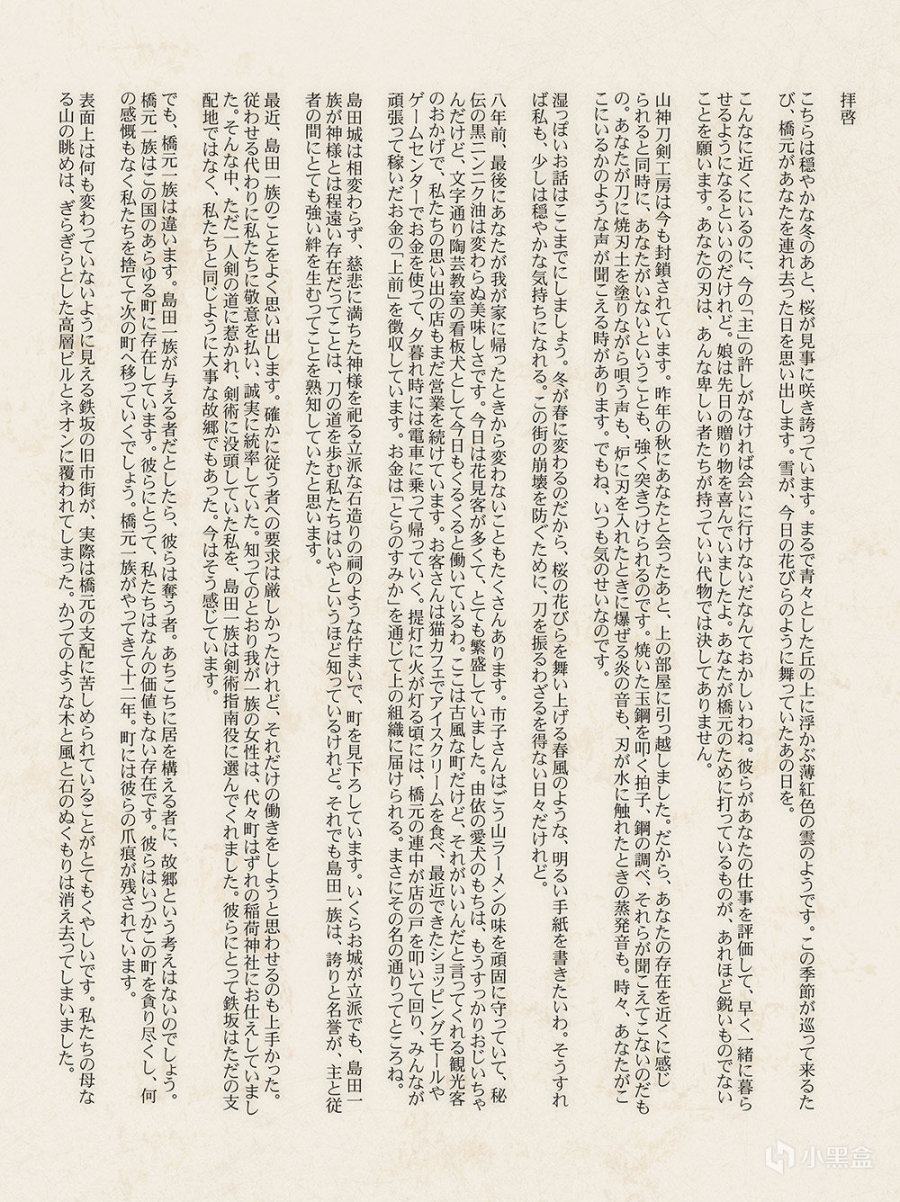 拝啓
こちらは穏やかな冬のあと、桜が見事に咲き誇っています。まるで青々とした丘の上に浮かぶ薄紅色の雲のようです。この季節が巡って来るた
び、橋元があなたを連れ去った日を思い出します。雪が、今日の花びらのように舞っていたあの日を。
こんなに近くにいるのに、今の「主」の許しがなければ会いに行けないだなんておかしいわね。彼らがあなたの仕事を評価して、早く一緒に暮ら
せるようになるといいのだけれど。娘は先日の贈り物を喜んでいましたよ。あなたが橋元のために打っているものが、あれほど鋭いものでない
ことを願います。あなたの刃は、あんな卑しい者たちが持っていい代物では決してありません。
山神刀剣工房は今も封鎖されています。昨年の秋にあなたと会ったあと、上の部屋に引っ越しました。だから、あなたの存在を近くに感じ
られると同時に、あなたがいないということも、強く突きつけられるのです。焼いた玉鋼を叩く拍子、鋼の調べ、それらが聞こえてこないのだも
の。あなたが刀に焼刃土を塗りながら唄う声も、炉に刃を入れたときに爆ぜる炎の音も、刃が水に触れたときの蒸発音も。時々、あなたがこ
こにいるかのような声が聞こえる時があります。でもね、いつも気のせいなのです。
湿っぽいお話はここまでにしましょう。冬が春に変わるのだから、桜の花びらを舞い上げる春風のような、明るい手紙を書きたいわ。そうすれ
ば私も、少しは穏やかな気持ちになれる。この街の崩壊を防ぐために、刀を振るわざるを得ない日々だけれど。
八年前、最後にあなたが我が家に帰ったときから変わないこともたくさんあります。市子さんはごう山ラーメンの味を頑固に守っていて、秘
伝の黒ニンニク油は変わらぬ美味しさです。今日は花見客が多くて、とても繁盛していました。由依の愛犬のもちは、もうすっかりおじいちゃ
んだけど、文字通り陶芸教室の看板犬として今日もくるくると働いているわ。ここは古風な町だけど、それがいいんだと言ってくれる観光客
のおかげで、私たちの思い出の店もまだ営業を続けています。お客さんは猫カフェでアイスクリームを食べ、最近できたショッピングモールや
ゲームセンターでお金を使って、夕暮れ時には電車に乗って帰っていく。提灯に火が灯る頃には、橋元の連中が店の戸を叩いて回り、みんなが
頑張って稼いだお金の「上前」を徴収しています。お金は「とらのすみか」を通じて上の組織に届けられる。まさにその名の通りってところね。
島田城は相変わらず、慈悲に満ちた神様を祀る立派な石造りの祠のような佇まいで、町を見下ろしています。いくらお城が立派でも、島田一
族が神様とは程遠い存在だってことは、刀の道を歩む私たちはいやというほど知っているけれど。それでも島田一族は、誇りと名誉が、主と従
者の間にとても強い絆を生むってことを熟知していたと思います。
最近、島田一族のことをよく思い出します。確かに従う者への要求は厳しかったけれど、それだけの働きをしようと思わせるのも上手かった。
従わせる代わりに私たちに敬意を払い、誠実に統率していた。知ってのとおり我が一族の女性は、代々町はずれの稲荷神社にお仕えしていまし
た。そんな中、ただ一人剣の道に惹かれ、剣術に没頭していた私を、島田一族は剣術指南役に選んでくれました。彼らにとって鉄坂はただの支
配地ではなく、私たちと同じように大事な故郷でもあった。今はそう感じています。
でも、橋元一族は違います。島田一族が与える者だとしたら、彼らは奪う者。あちこちに居を構える者に、故郷という考えはないのでしょう。
橋元一族はこの国のあらゆる町に存在しています。彼らにとって、私たちはなんの価値もない存在です。彼らはいつかこの町を貪り尽くし、何
の感慨もなく私たちを捨てて次の町へ移っていくでしょう。橋元一族がやってきて十二年。町には彼らの爪痕が残されています。
表面上は何も変わっていないように見える鉄坂の旧市街が、実際は橋元の支配に苦しめられていることがとてもくやしいです。私たちの母な
る山の眺めは、ぎらぎらとした高層ビルとネオンに覆われてしまった。かつてのような木と風と石のぬくもりは消え去ってしまいました。
小黑盒